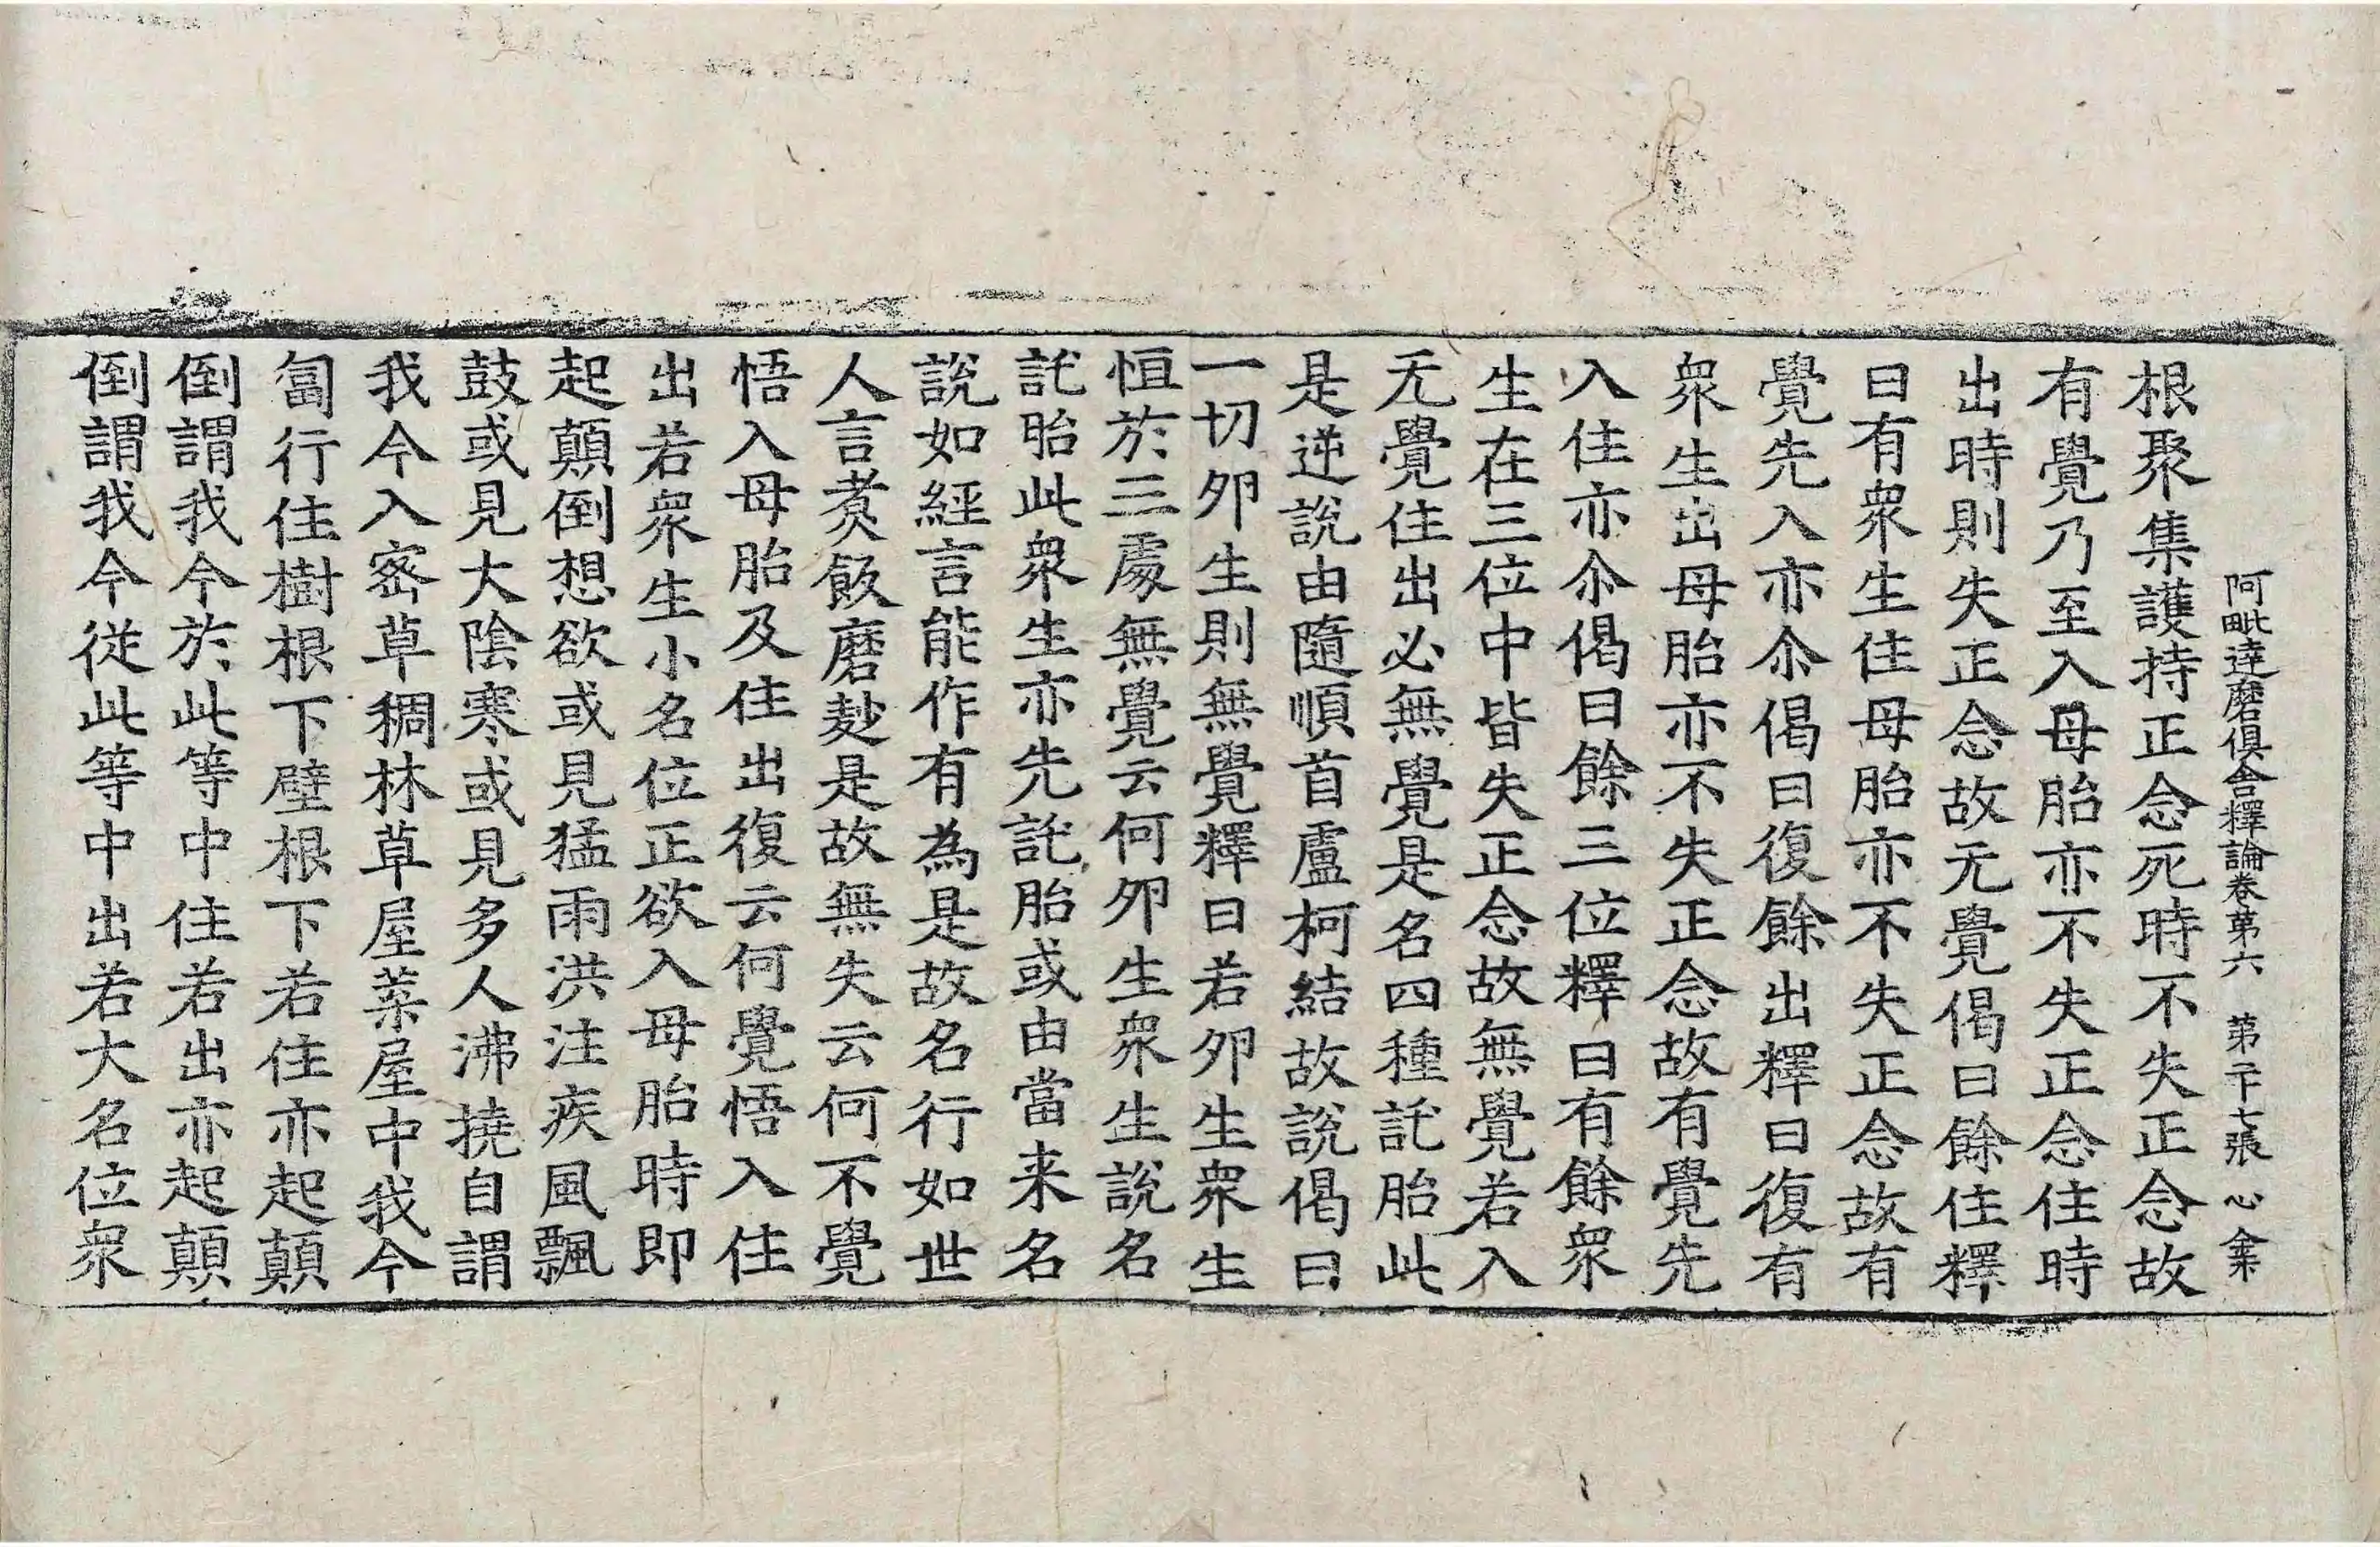 阿毗達磨俱舍釋論卷第六　第二十七張　心
根聚集護持正念死時不失正念故
有覺乃至入母胎亦不失正念住時
出時則失正念故无覺偈曰餘住釋
曰有衆生住母胎亦不失正念故有
覺先入亦尒偈曰復餘出釋曰復有
衆生出母胎亦不失正念故有覺先
入住亦尒偈曰餘三位釋曰有餘衆
生在三位中皆失正念故無覺若入
无覺住出必無覺是名四種託胎此
是逆說由隨順首盧柯結故說偈曰
一切卵生則無覺釋曰若卵生衆生
恒於三處無覺云何卵生衆生說名
託胎此衆生亦先託胎或由當来名
說如經言能作有為是故名行如世
人言煑飯磨麨是故無失云何不覺
悟入母胎及住出復云何覺悟入住
出若衆生小名位正欲入母胎時即
起顛倒想欲或見猛雨洪注疾風飄
鼓或見大陰寒或見多人沸撓自謂
我今入宻草稠林草屋菜屋中我今
匐行住樹根下壁根下若住亦起顛
倒謂我今於此等中住若出亦起顛
倒謂我今従此等中出若大名位衆